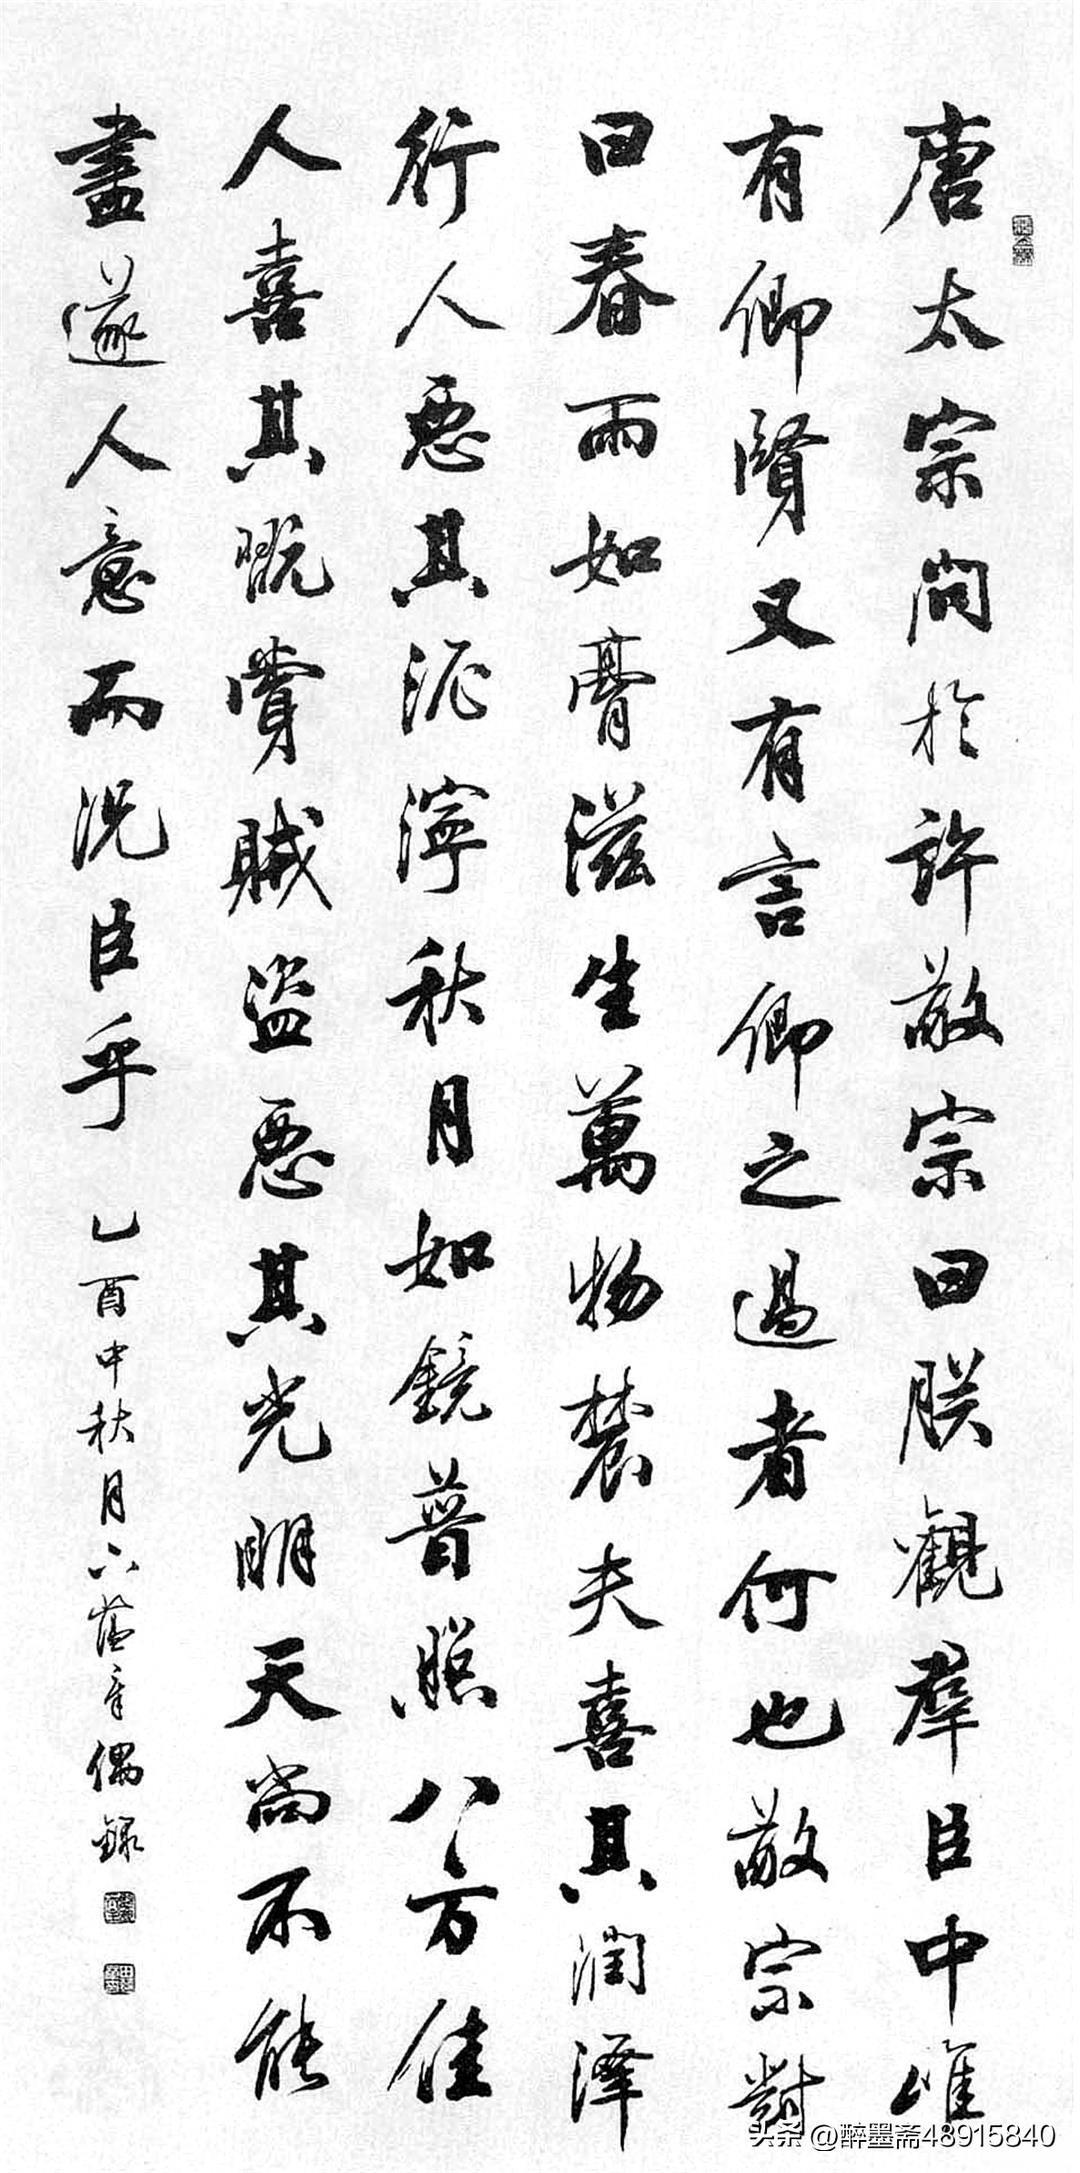 唐太宗問於許敬宗曰朕觀群臣中唯
有卿賢又有言卿之過者何也敬宗對
曰春雨如膏滋生萬物農夫喜其潤澤
行人惡其泥濘秋月如鏡普照八方佳
人喜其玩賞賊盜惡其光明天尚不能
盡遂人意而況臣乎
乙酉中秋月六
偶錄
头条 @醉墨斋48915840